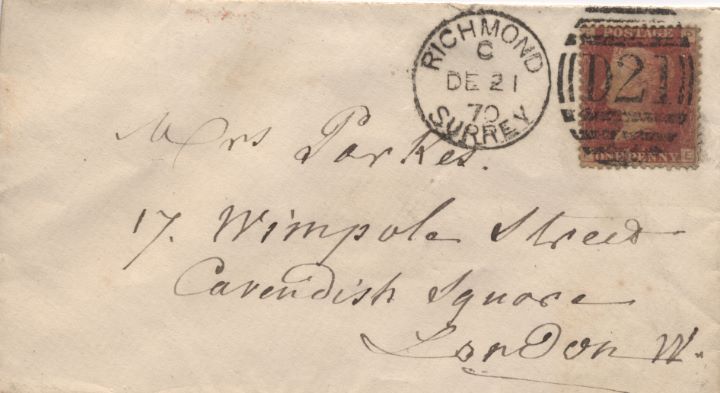 RICHMOND
C
DE 21
70
SURREY
POSTAGE
D21
ONE PENNY
Mrs Parkes.
17. Wimpole Street
Cavendish Square
London W.